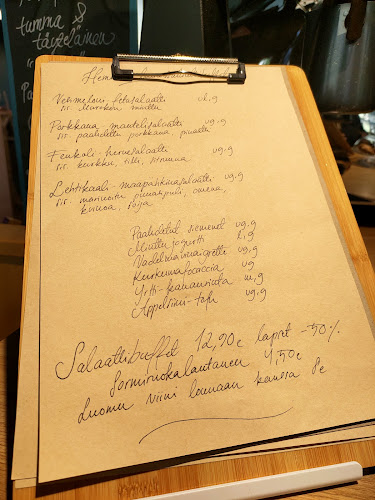 tumma &
täyteläinen
Vesimeloni-fetasalaatti vl.g
sis. tuoretta minttua
Porkkana-mantelisalaatti vg.g
sis. paahdettu porkkana, pinaatti
Fenkoli-hernesalaatti vg.g
sis. kurkku, tilli, sitruuna
Lehtikaali-maapähkinäsalaatti vg.g
sis. marinoitu punasipuli, omena,
kvinoa, soija
Paahdetut siemenet vg.g
Minttujogurtti l,g
Vadelmavinaigrette vg.g
Kurkumafocaccia vg
Yrtti-kananmuna m,g
Appelsiini-tofu vg.g
Salaattibuffet 12,90€ lapset -50%
Sormiruokalautanen 4,50€
Luomu viini lounaan kanssa 8€